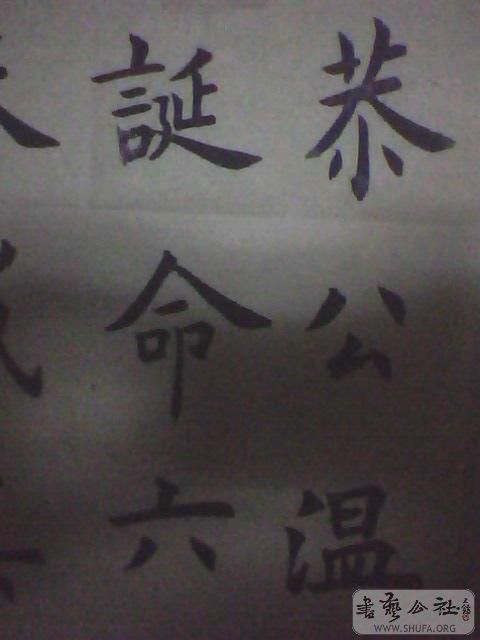 恭公温
誕命六
書藝公社
WWW.SHUFA.ORG